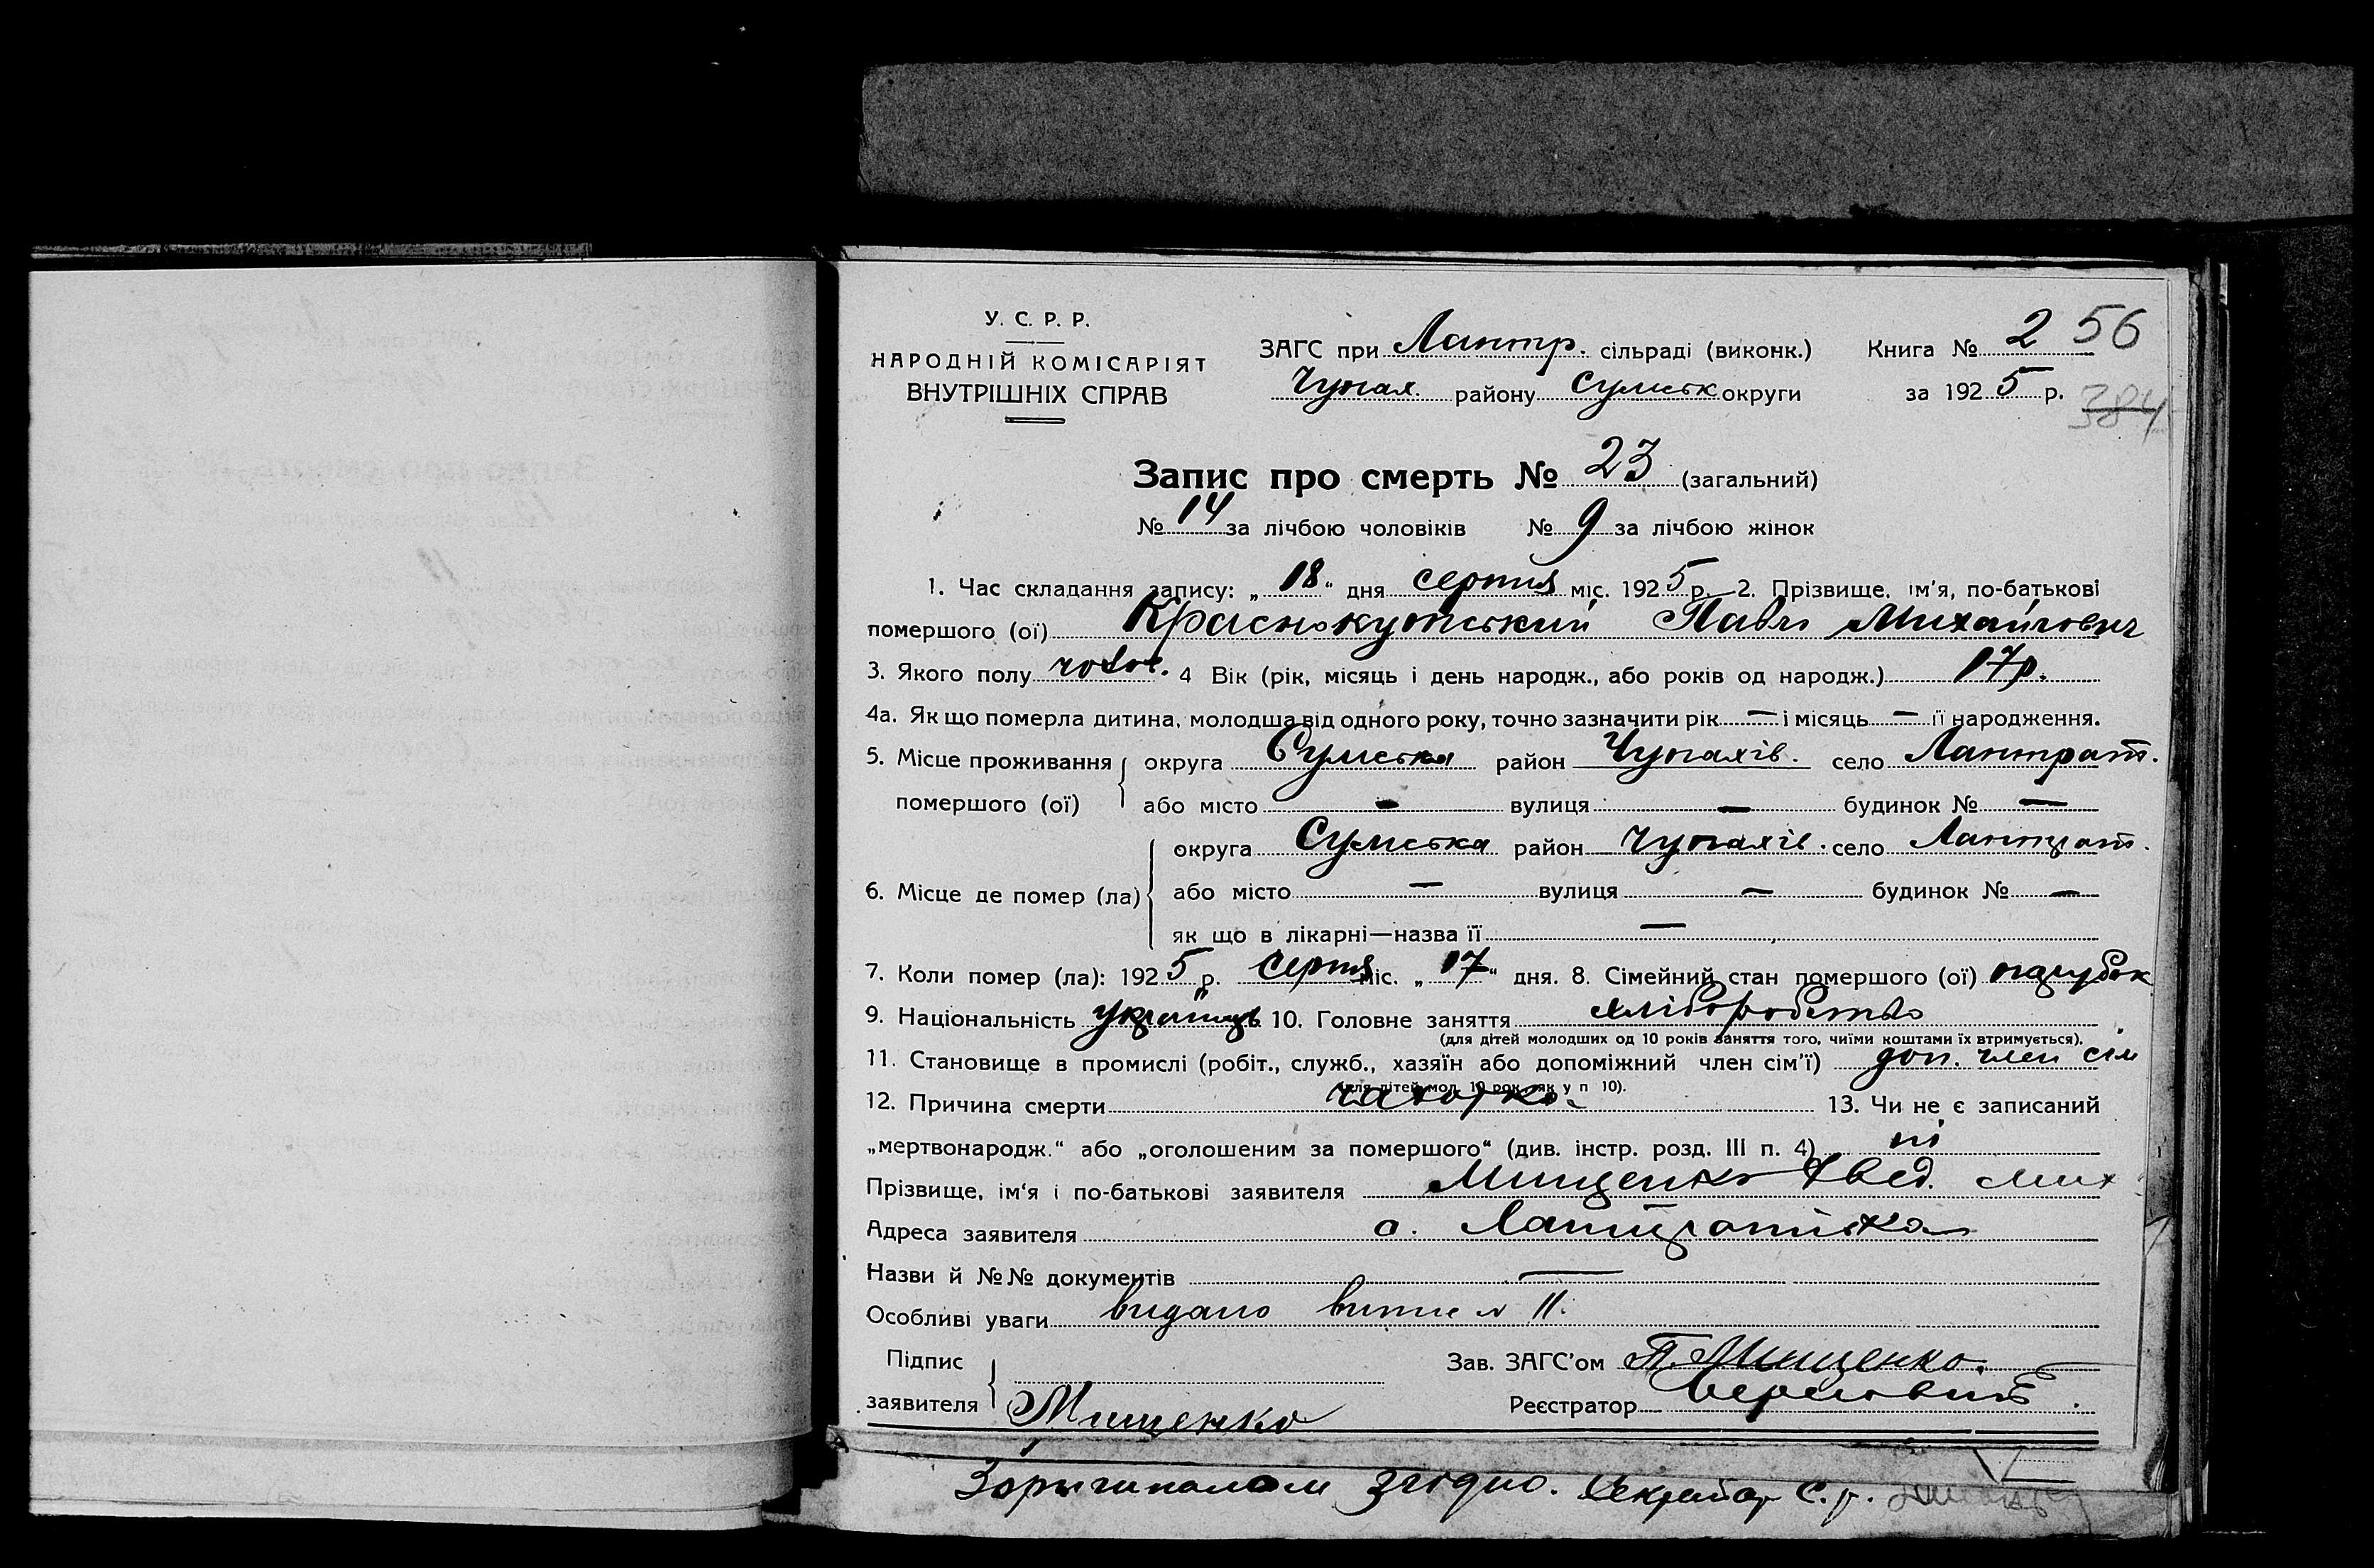 У. С. Р. Р.
НАРОДНІЙ КОМІСАРІЯТ
ВНУТРІШНІХ СПРАВ
ЗАГС при Лантр. сільраді (виконк.) Книга № 2 56
Чупах. району Сумськ округи за 1925 р. 384
Запис про смерть № 23 (загальний)
№ 14 за лічбою чоловіків № 9 за лічбою жінок
1. Час складання запису: „18“ дня серпня міс. 1925 р. 2. Прізвище, ім'я, по-батькові
помершого (ої) Краснокутський Павло Михайлович
3. Якого полу чолов. 4 Вік (рік, місяць і день народж., або років од народж.) 17 р.
4а. Як що померла дитина, молодша від одного року, точно зазначити рік — і місяць — її народження.
5. Місце проживання округа Сумська район Чупахів. село Лантрат.
помершого (ої) або місто — вулиця — будинок № —
округа Сумська район Чупахів. село Лантрат.
6. Місце де помер (ла) або місто — вулиця — будинок № —
як що в лікарні—назва її —
7. Коли помер (ла): 1925 р. Серпня міс. „17“ дня. 8. Сімейний стан помершого (ої) парубок
9. Національність українець 10. Головне заняття хліборобство
(для дітей молодших од 10 років заняття того, чиїми коштами їх втримується).
11. Становище в промислі (робіт., служб., хазяїн або допоміжний член сім'ї) доп. член сім
(для дітей мол. 10 рок. як у п 10).
12. Причина смерти чахотка 13. Чи не є записаний
„мертвонародж.“ або „оголошеним за помершого“ (див. інстр. розд. III п. 4) ні
Прізвище, ім'я і по-батькові заявителя Мищенко Мих
Адреса заявителя с. Лантратівка
Назви й №№ документів —
Особливі уваги видано випис № 11.
Підпис
заявителя Мищенко
Зав. ЗАГС'ом П. Мищенко.
Реєстратор
З оригиналом згідно. Секретар С. р.